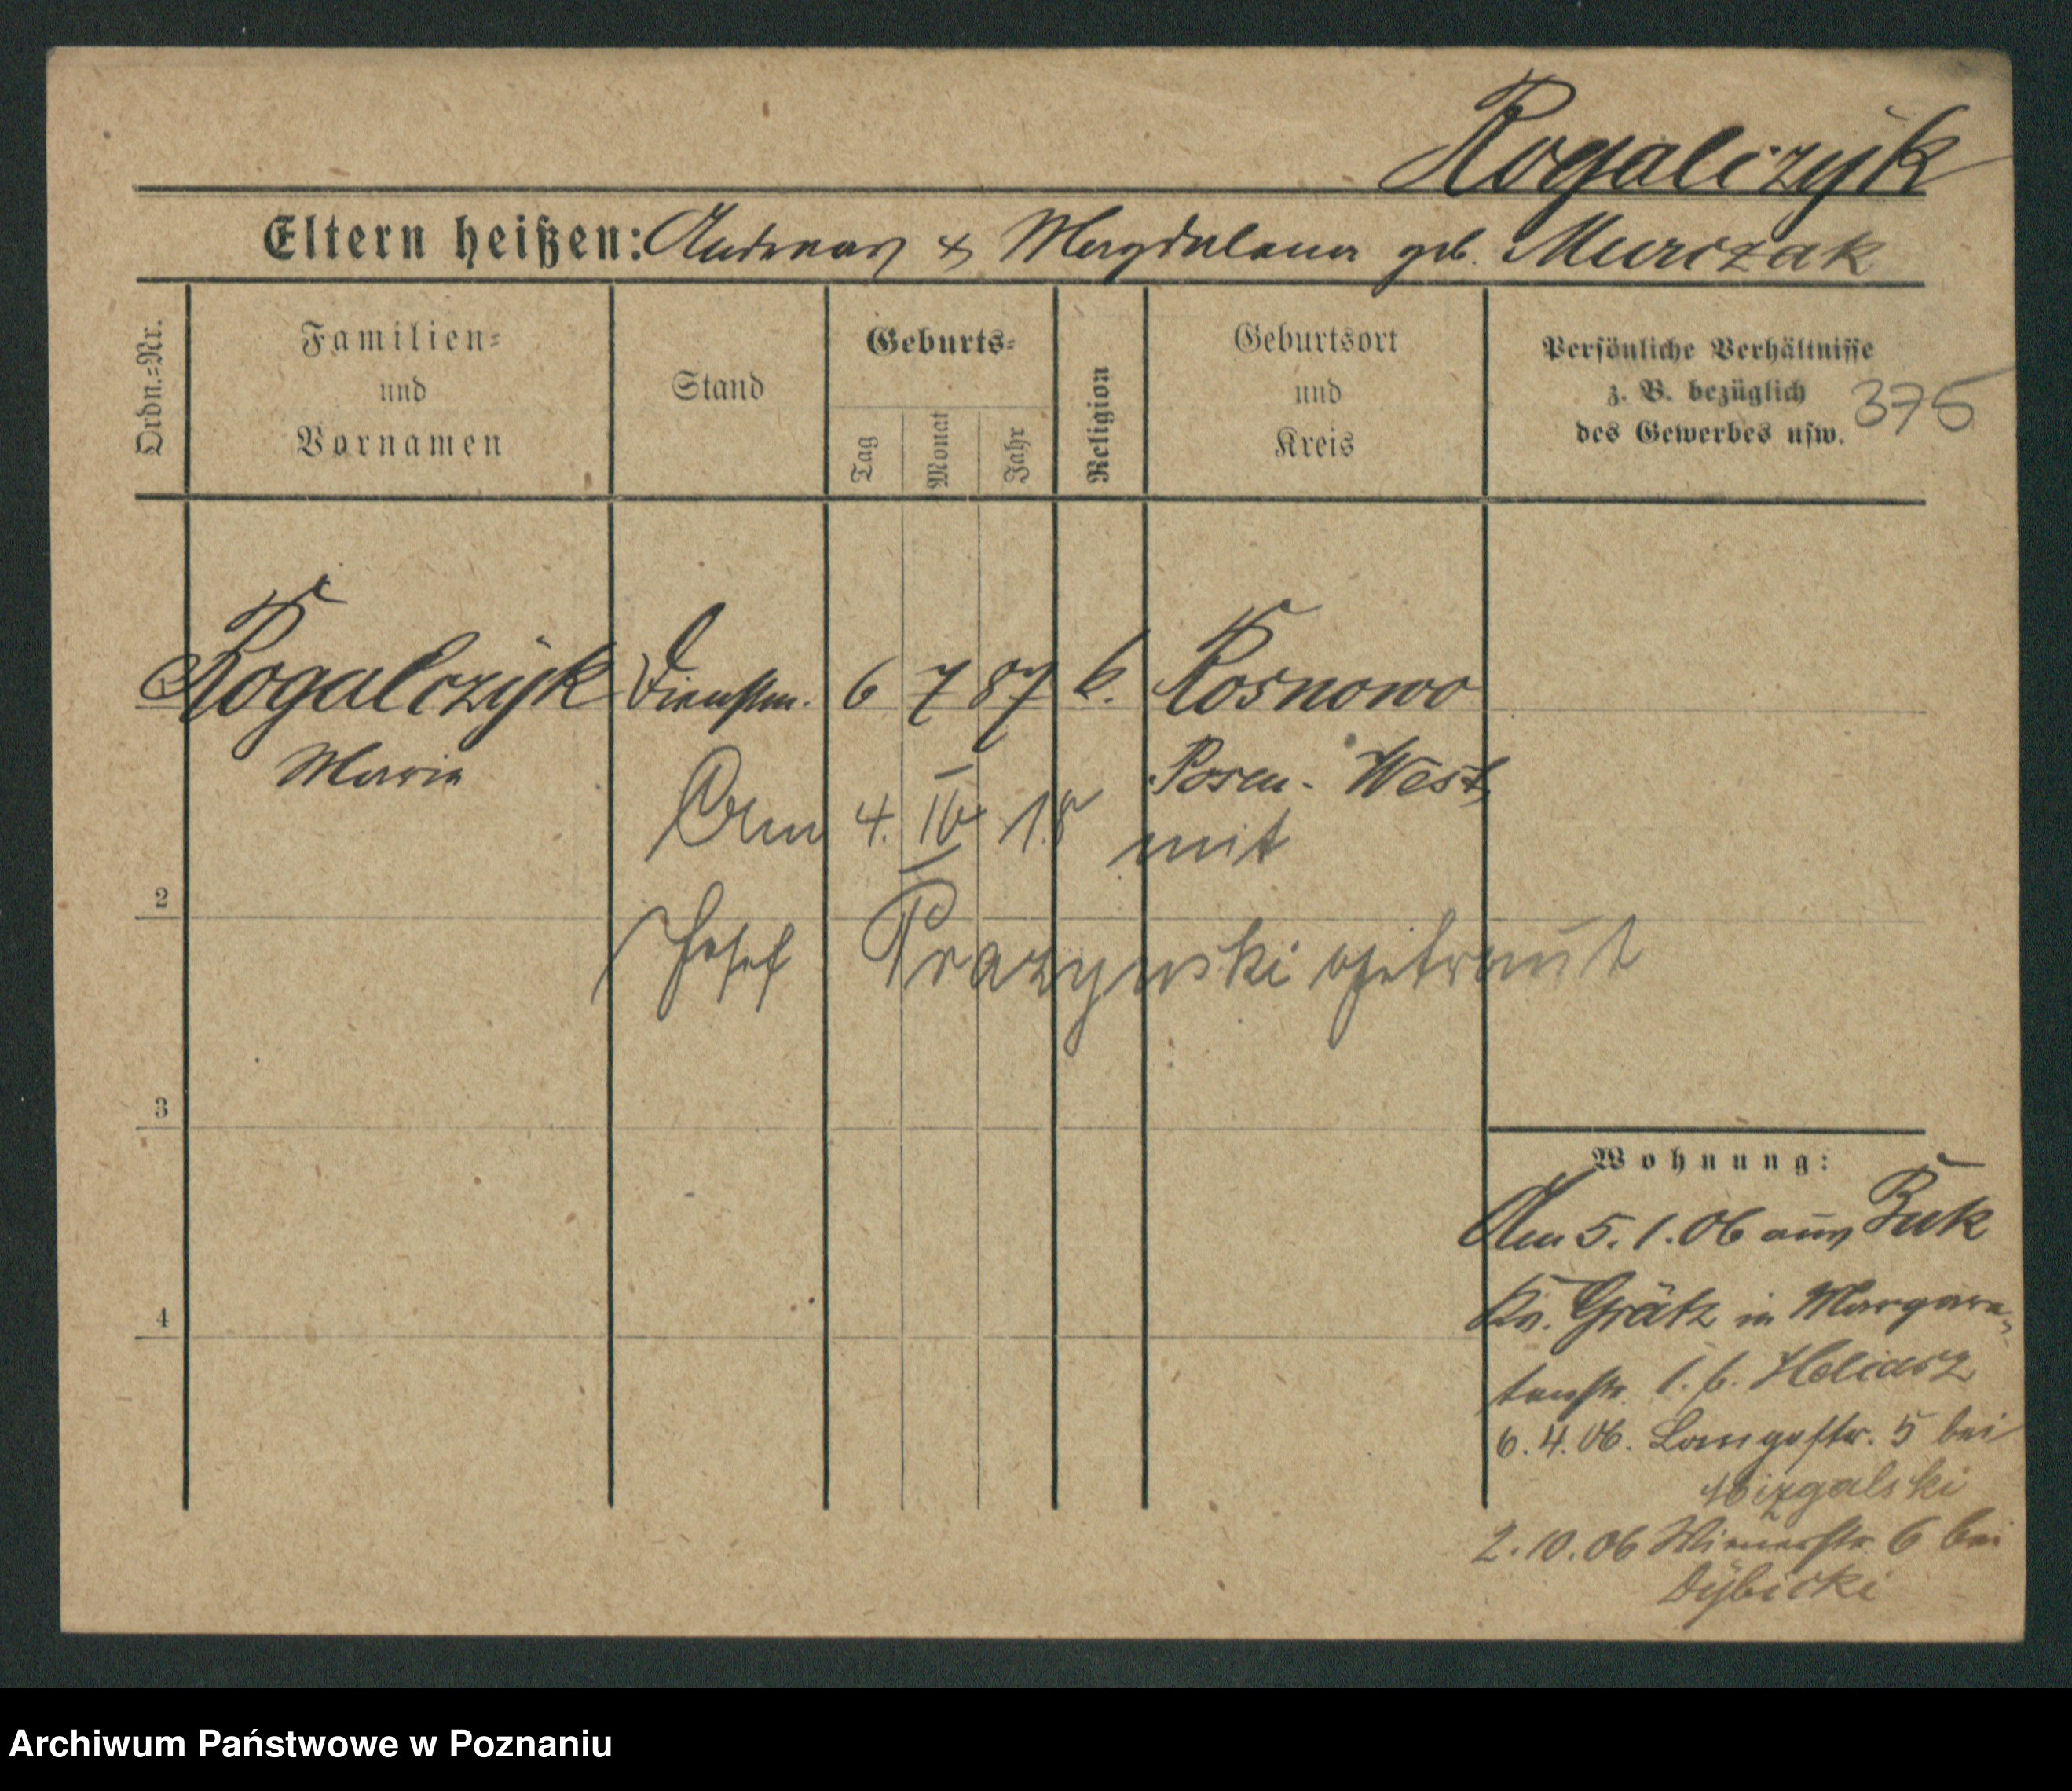 Rogalczyk
Eltern heißen: Andreas & Magdalena geb. Murczak
Ordn.=Nr.
Familien=
und
Vornamen
Stand
Geburts=
Tag
Monat
Jahr
Religion
Geburtsort
und
Kreis
Persönliche Verhältnisse
z. B. bezüglich
des Gewerbes usw.
375
Rogalczyk Dienstm. 6 7 87 k. Rosnowo
Maria Posen-West
Am 4. IV 18 mit
2
Josef Prazynski getraut
3
Wohnung:
Am 5.1.06 aus Buk
Kr. Grätz in Margare-
4
tenstr. 1. b. Heliasz
6.4.06. Langestr. 5 bei
2.10.06 Wienerstr. 6 bei
Dybicki
Archiwum Państwowe w Poznaniu